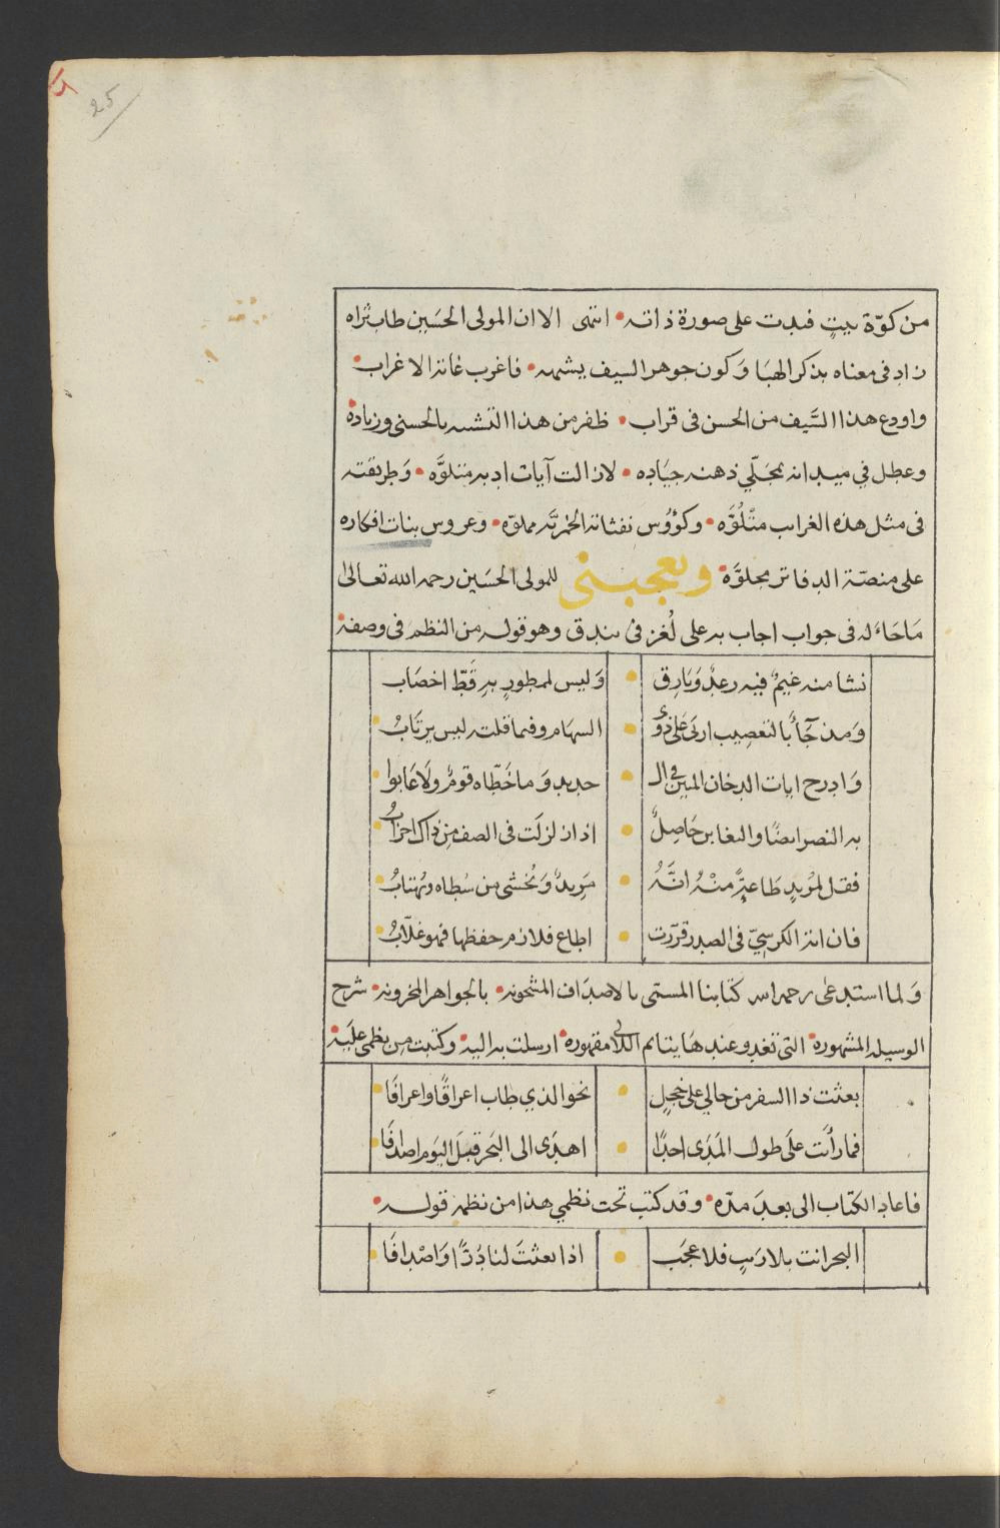 25
من كوّة بيتٍ فبدت على صورة ذاته • انتهى الا ان المولى الحسَين طاب ثراه
زاد فى معناه بذكر الهبَا وَكون جوهر السيف يشبهه • فاغرب غاية الاغراب •
واودع هذا السَّيف من الحسن فى قراب • ظفر من هذا التشبيه بالحسنى وزيادة
وعطل في ميدانه بمجَلّي ذهنه جيَاده • لازالت آيات ادبه متلوَّه • وَطريقته
فى مثل هذه الغراب متْلُوَّه • وكؤوس نفثاته الخمريَّه مملوّه • وعروس بنات افكاره
على منصّة الدفاتر مجلوَّة • ويعجبنى للمولى الحسَين رحمه الله تعالى
مَاجَاءَ له فى جواب اجاب به على لُغز فى بندق وهو قوله من النظم فى وصفه •
نشا منه غيمٌ فيه رعدٌ وَبَارِق • وَليس لممطورٍ بهِ قَطّ اخصَاب
وَمن جَآءَ بالتعصِيب اربَى على ذوى • السهَام وفيما قلت ليس يرتَابُ •
وَادرج ايات الدخان المبين فى ال • حديد وَماخَطّاه قومٌ ولَا عَابوا •
به النصر ايضًا والتغابن حَاصِلٌ • اذا زلزلَت فى الصف من ذاك احزابُ •
فقل لمُريدٍ طَاعةً منْهُ انّهُ • مَريدٌ وَيُخشى من سُطاه ويُهتابُ •
فان اية الكرسيّ فى الصدر قرّرت • اطاع فلازم حفظها فهو غلّابُ •
وَلما استدعى رحمه الله كتابنا المسمى بالاصدَاف المشحونه • بالجواهر المخزونه • شرح
الوسيله المشهورة • التى تغدو عندهَا يتائم اللآلى مقهورة • ارسلت به اليه • وكتبت من نظمى عليَه •
بعثت ذا السفر من حالي على خجلٍ • نحو الذي طاب اعراقًا واعرافًا •
فما رأَت علَى طول المَدَى احدًا • اهدَى الى البَحر قبلَ اليَوم اصدافَا •
فاعاد الكتاب الى بعدَ مدّه • وقد كتب تحت نظمي هذا من نظمه قوله •
البحر انت بلا رَيبٍ فلا عجَب • اذا بعثتَ لنا دُرًّا وَاصْدافَا •